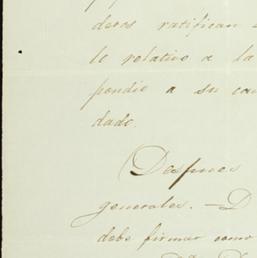 deros ratifican
lo relativo a la
pondio a su ca
dado.
Despues
generales. — D
debe firmar como